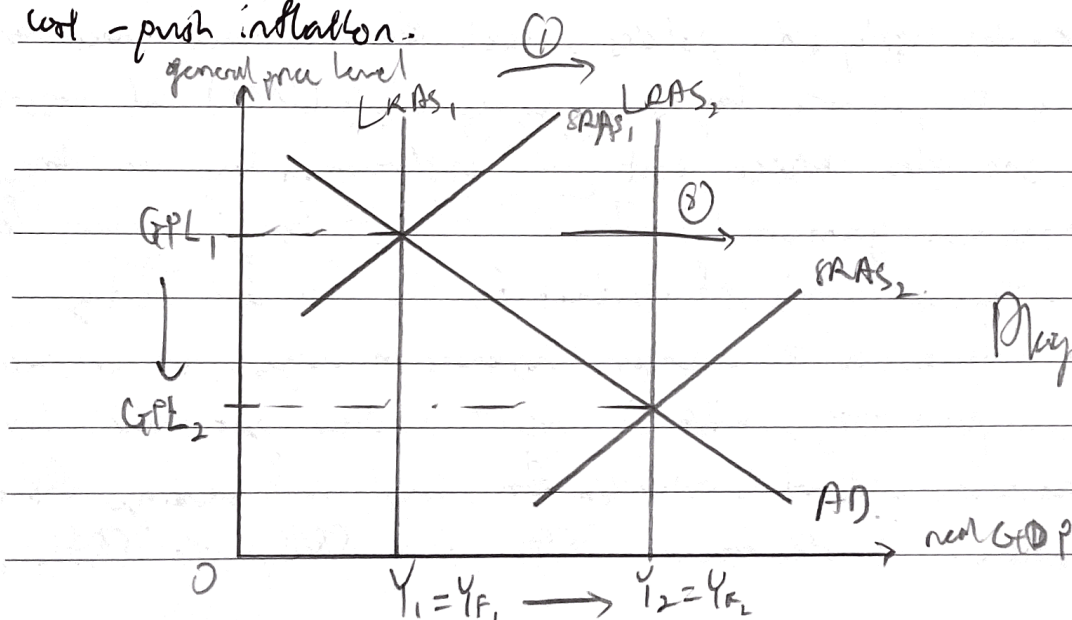 cost - push inflation.
①
general price level
LRAS₁
SRAS₁ LRAS₂
②
GPL₁
SRAS₂
GPL₂
AD
real GDP
0
Y₁ = Y_F₁ → Y₂ = Y_F₂